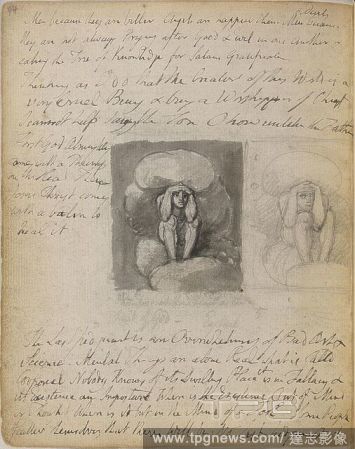 94
Men because they are better Angels are happier than Men
they are not always Prying after Good & Evil in one Another &
eating the Tree of Knowledge for Satans Gratification
Thinking as I do that the Creator of this World is a
very Cruel Being & being a Worshipper of Christ
I cannot help saying the Son O how unlike the Father
First God Almighty
comes with a Thump
on the Head Then
Jesus Christ comes
with a balm to
heal it
The Last Judgment is an Overwhelming of Bad Art &
Science. Mental Things are alone Real what is Calld
Corporeal Nobody Knows of its Dwelling Place it is in Fallacy &
its Existence an Imposture Where is the Existence Out of Mind
or Thought Where is it but in the Mind of a Fool. Some People
flatter themselves that there will be No Last
www.tpgnews.com/達志影像